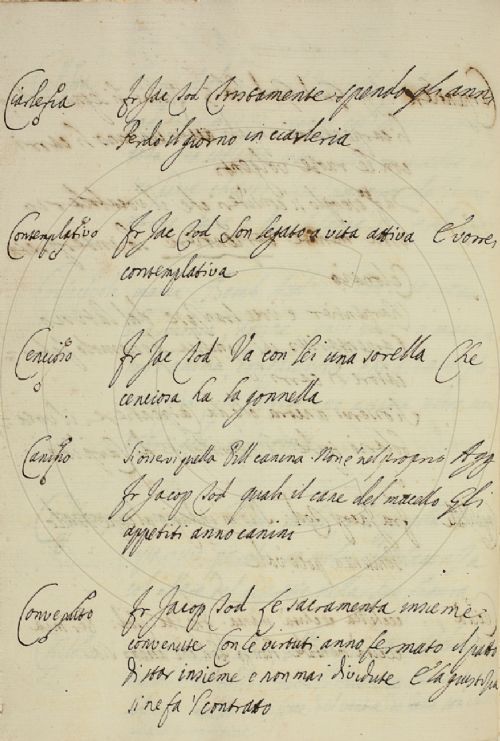 Ciarleria fr Jac Tod Tristamente spendo gli anni
Perdo il giorno in ciarleria
Contemplativo fr Jac Tod Son legato a vita attiva E vorrei
contemplativa
Cencioso fr Jac Tod Va con lei una sorella Che
cenciosa ha la gonnella
Canino Si osservi quella canina. Non è nel proprio Agg
fr Jacop Tod quali il cane del macello Gli
appetiti anno canini
Convenuto fr Jacop Tod Le sacramenta insieme
convenute Con le virtuti anno fermato il patto
Di star insieme e non mai dividute E la giustitia
si ne fa 'l contratto